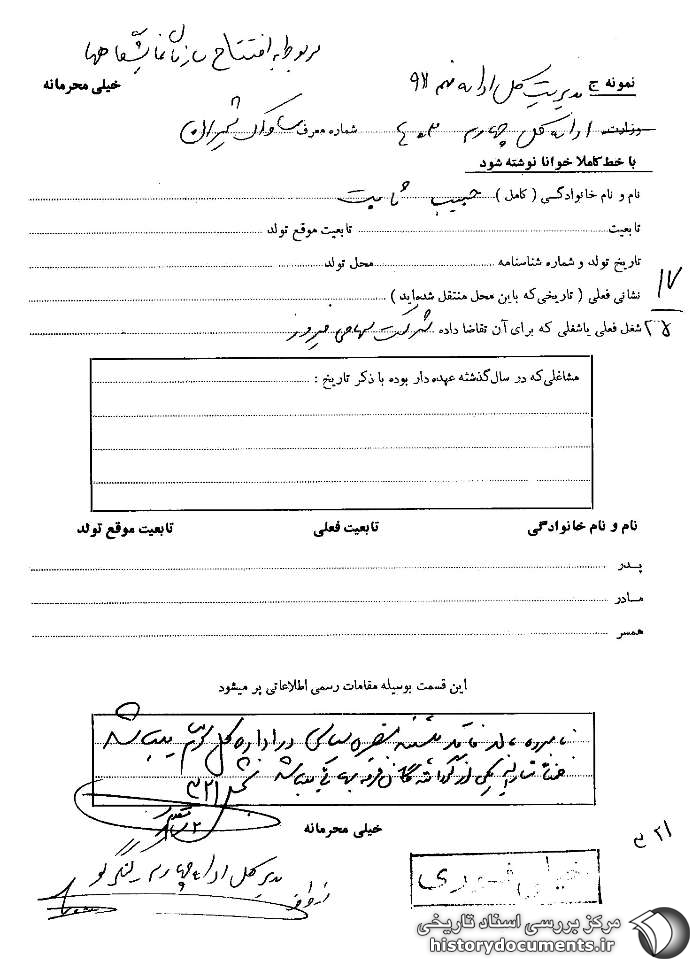 مربوط به افتتاح سازمان نمایشگاهها
خیلی محرمانه
نمونه ج مدیریت کل اداره نهم ۹۲۱
وزارت اداره کل چهارم ۴۰۳ شماره معرف ساواک شمیران
با خط کاملا خوانا نوشته شود
نام و نام خانوادگی ( کامل ) حبیب ثابت
تابعیت تابعیت موقع تولد
تاریخ تولد و شماره شناسنامه محل تولد
نشانی فعلی ( تاریخی که باین محل منتقل شده‌اید )
۱۷
۲۵
شغل فعلی یاشغلی که برای آن تقاضا داده شرکت سهامی فیروز
مشاغلی که در سال گذشته عهده دار بوده با ذکر تاریخ :
نام و نام خانوادگی تابعیت فعلی تابعیت موقع تولد
پدر
مادر
همسر
این قسمت بوسیله مقامات رسمی اطلاعاتی پر میشود
نامبرده بالا فاقد پیشینه مضره سیاسی در اداره کل سوم میباشد
ضمناً مشارالیه یکی از گردانندگان فرقه بهائی میباشد
بخش ۳۲۱
خیلی محرمانه
۳۲۱
مدیر کل اداره چهارم
خیلی فوری
مرکز بررسی اسناد تاریخی
historydocuments.ir